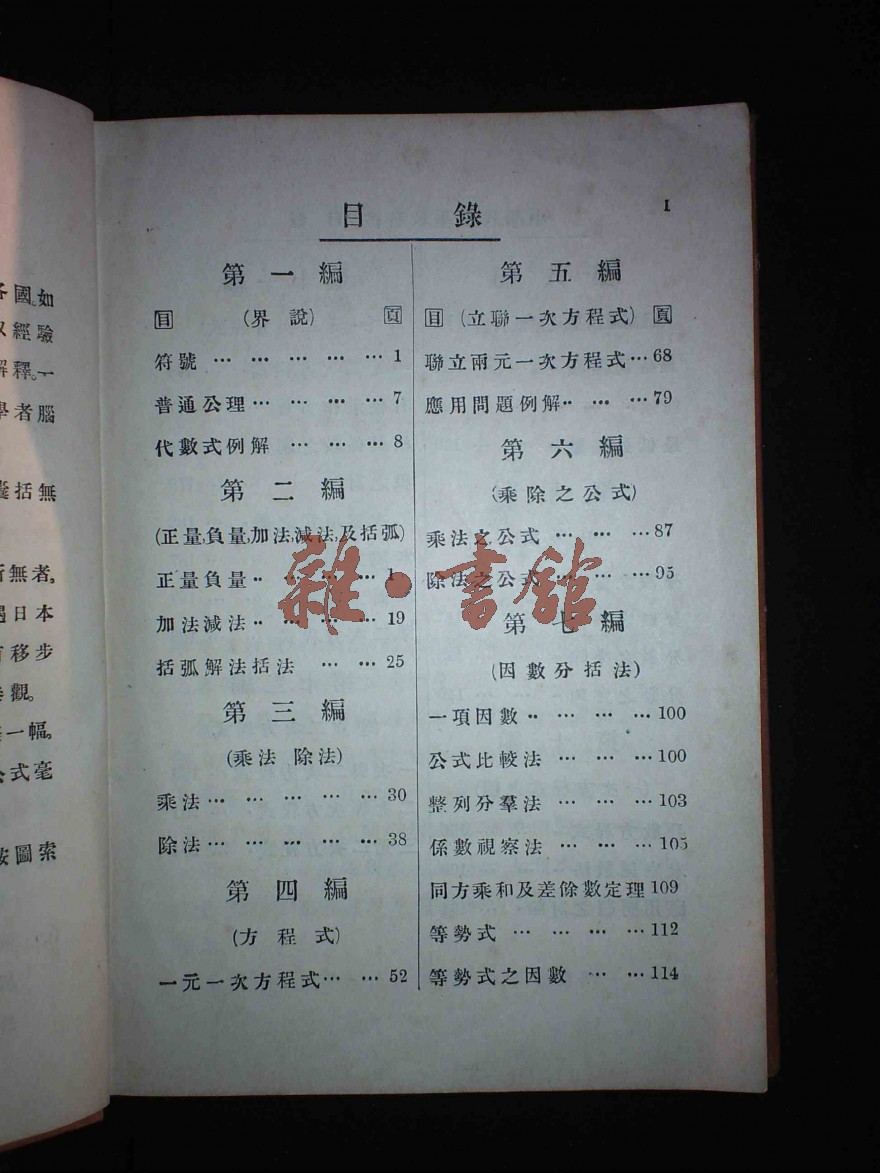 各國。如
以經驗
解釋。一
學者腦
囊括無
所無者。
過日本
有移步
一幅。
公式毫
按圖索
目錄
I
第一編
目 (界說) 頁
符號 … … … … … 1
普通公理 … … … … 7
代數式例解 … … … 8
第二編
(正量,負量,加法,減法,及括弧)
正量負量 ‥ … … … 1
加法減法 ‥ … … … 19
括弧解法括法 … … 25
第三編
(乘法 除法)
乘法 … … … … … 30
除法 … … … … … 38
第四編
(方程式)
一元一次方程式 … … 52
第五編
目 (立聯一次方程式) 頁
聯立兩元一次方程式 … 68
應用問題例解 ‥ … … 79
第六編
(乘除之公式)
乘法之公式 … … … 87
除法之公式 … … … 95
第七編
(因數分括法)
一項因數 ‥ … … … 100
公式比較法 … … … 100
整列分羣法 … … … 103
係數視察法 … … … 105
同方乘和及差餘數定理 109
等勢式 … … … … 112
等勢式之因數 … … 114
雜·書館